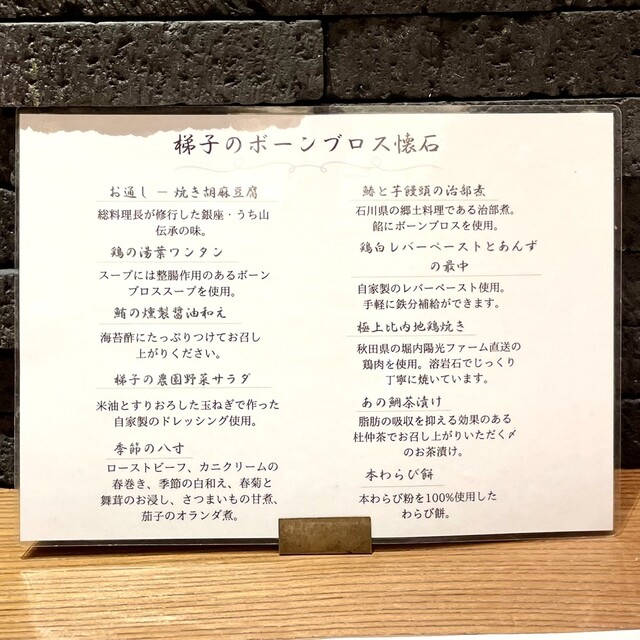 梯子のボーンブロス懐石
お通し － 焼き胡麻豆腐
総料理長が修行した銀座・うち山
伝承の味。
鶏の湯葉ワンタン
スープには整腸作用のあるボーン
ブロススープを使用。
鮪の燻製醤油和え
海苔酢にたっぷりつけてお召し
上がりください。
梯子の農園野菜サラダ
米油とすりおろした玉ねぎで作った
自家製のドレッシング使用。
季節の八寸
ローストビーフ、カニクリームの
春巻き、季節の白和え、春菊と
舞茸のお浸し、さつまいもの甘煮、
茄子のオランダ煮。
鰆と芋饅頭の治部煮
石川県の郷土料理である治部煮。
餡にボーンブロスを使用。
鶏白レバーペーストとあんず
の最中
自家製のレバーペースト使用。
手軽に鉄分補給ができます。
極上比内地鶏焼き
秋田県の堀内陽光ファーム直送の
鶏肉を使用。溶岩石でじっくり
丁寧に焼いています。
あの鯛茶漬け
脂肪の吸収を抑える効果のある
杜仲茶でお召し上がりいただく〆
のお茶漬け。
本わらび餅
本わらび粉を100%使用した
わらび餅。